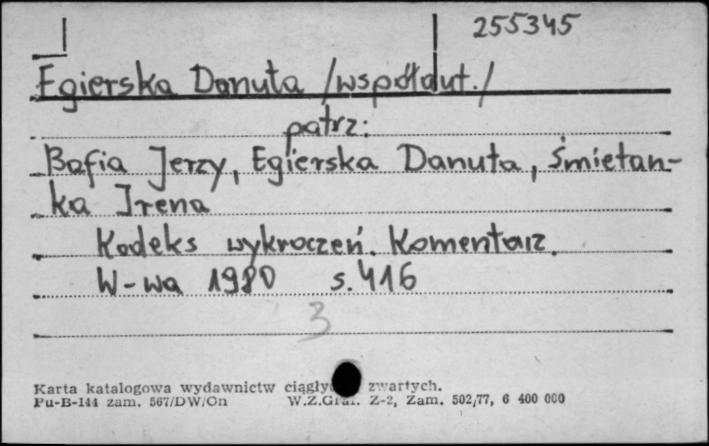 255345
Egierska Danuta /współaut./
patrz:
Bafia Jerzy, Egierska Danuta, Śmietan-
ka Irena
Kodeks wykroczeń. Komentarz.
W-wa 1980 s. 416
3
Karta katalogowa wydawnictw zwartych.
Pu-B-144 zam. 567/DW/On W.Z.Graf. Z-2, Zam. 502/77, 6 400 000